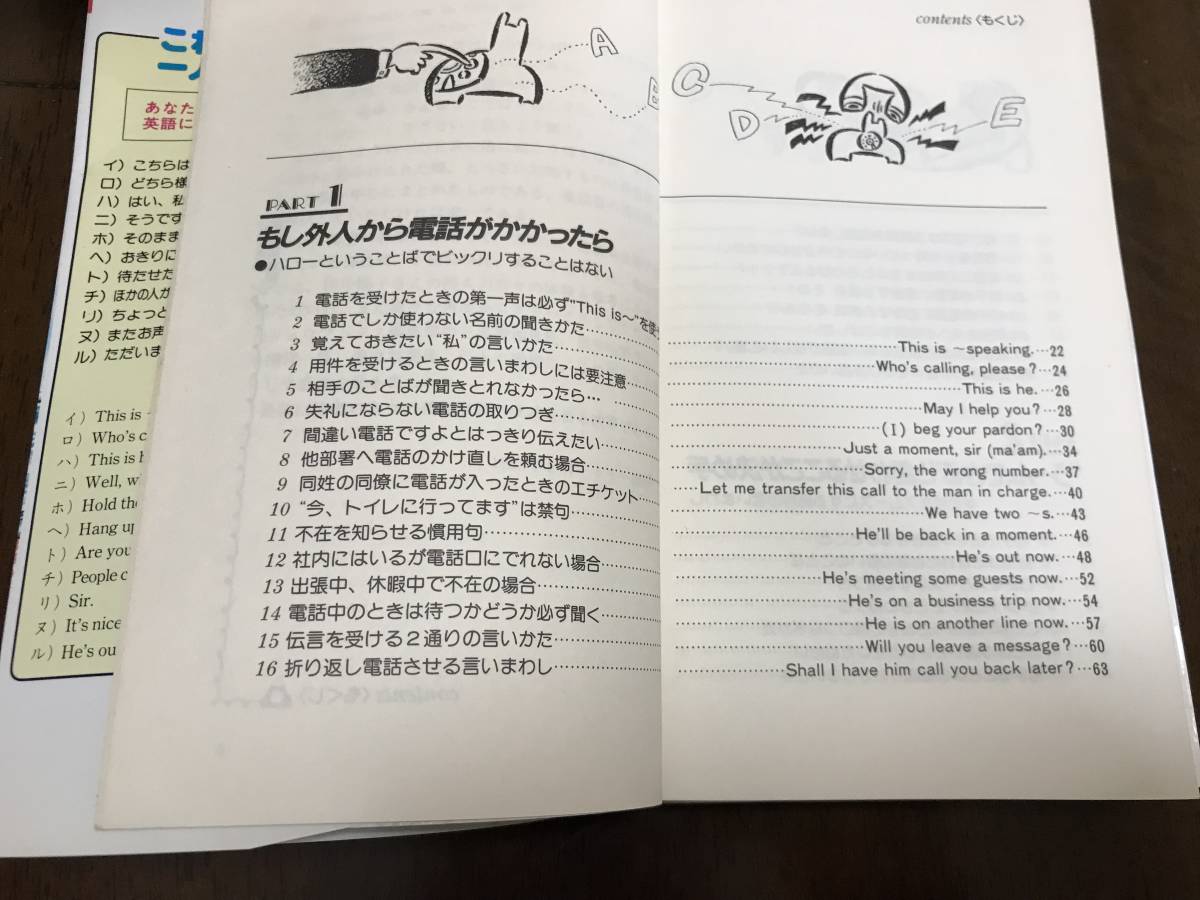 contents〈もくじ〉
A
B
C
D
E
PART 1
もし外人から電話がかかったら
●ハローということばでビックリすることはない
1 電話を受けたときの第一声は必ず"This is〜"を使
2 電話でしか使わない名前の聞きかた
3 覚えておきたい"私"の言いかた
4 用件を受けるときの言いまわしには要注意
5 相手のことばが聞きとれなかったら
6 失礼にならない電話の取りつぎ
7 間違い電話ですよとはっきり伝えたい
8 他部署へ電話のかけ直しを頼む場合
9 同姓の同僚に電話が入ったときのエチケット
10 "今、トイレに行ってます"は禁句
11 不在を知らせる慣用句
12 社内にはいるが電話口にでれない場合
13 出張中、休暇中で不在の場合
14 電話中のときは待つかどうか必ず聞く
15 伝言を受ける2通りの言いかた
16 折り返し電話させる言いまわし
This is 〜speaking.…22
Who's calling, please?…24
This is he.…26
May I help you?…28
(I) beg your pardon?…30
Just a moment, sir (ma'am).…34
Sorry, the wrong number.…37
Let me transfer this call to the man in charge.…40
We have two 〜s.…43
He'll be back in a moment.…46
He's out now.…48
He's meeting some guests now.…52
He's on a business trip now.…54
He is on another line now.…57
Will you leave a message?…60
Shall I have him call you back later?…63
あなた
英語に
イ）こちらは
ロ）どちら様
ハ）はい、私
ニ）そうです
ホ）そのまま
ヘ）おきりに
ト）待たせた
チ）ほかの人が
リ）ちょっと
ヌ）またお声
ル）ただいま
イ）This is
ロ）Who's c
ハ）This is h
ニ）Well, w
ホ）Hold the
ヘ）Hang up
ト）Are you
チ）People c
リ）Sir.
ヌ）It's nice
ル）He's ou